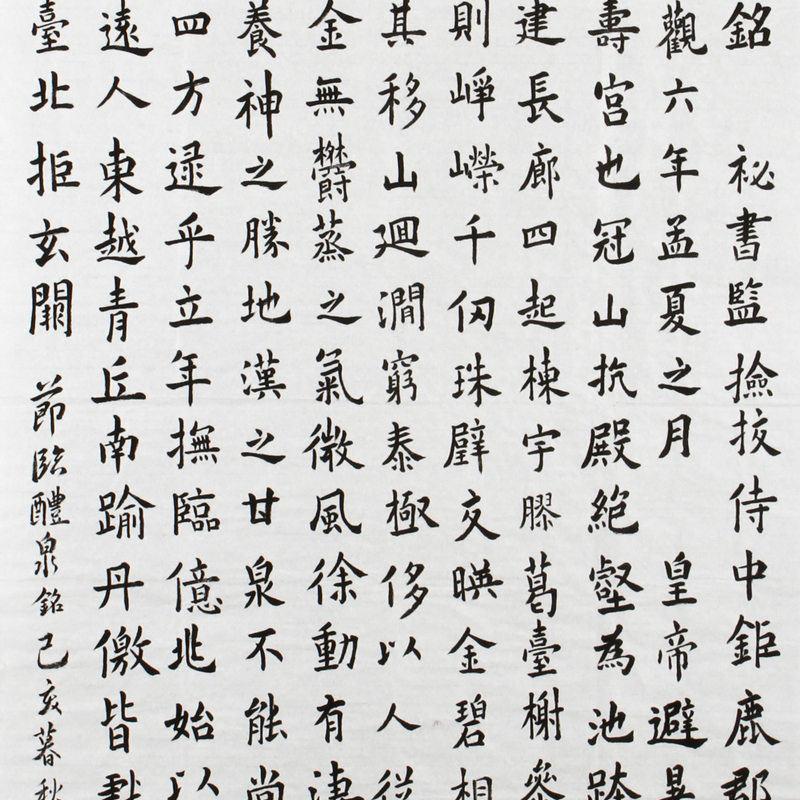 銘 祕書監撿挍侍中鉅鹿郡
觀六年孟夏之月 皇帝避暑
壽宮也冠山抗殿絕壑為池跨
建長廊四起棟宇膠葛臺榭參
則崢嶸千仞珠璧交暎金碧相
其移山迴澗窮泰極侈以人從
金無鬱蒸之氣微風徐動有淒
養神之勝地漢之甘泉不能尚
四方逮乎立年撫臨億兆始以
遠人東越青丘南踰丹儌皆獻
臺北拒玄闕 節臨醴泉銘己亥暮秋